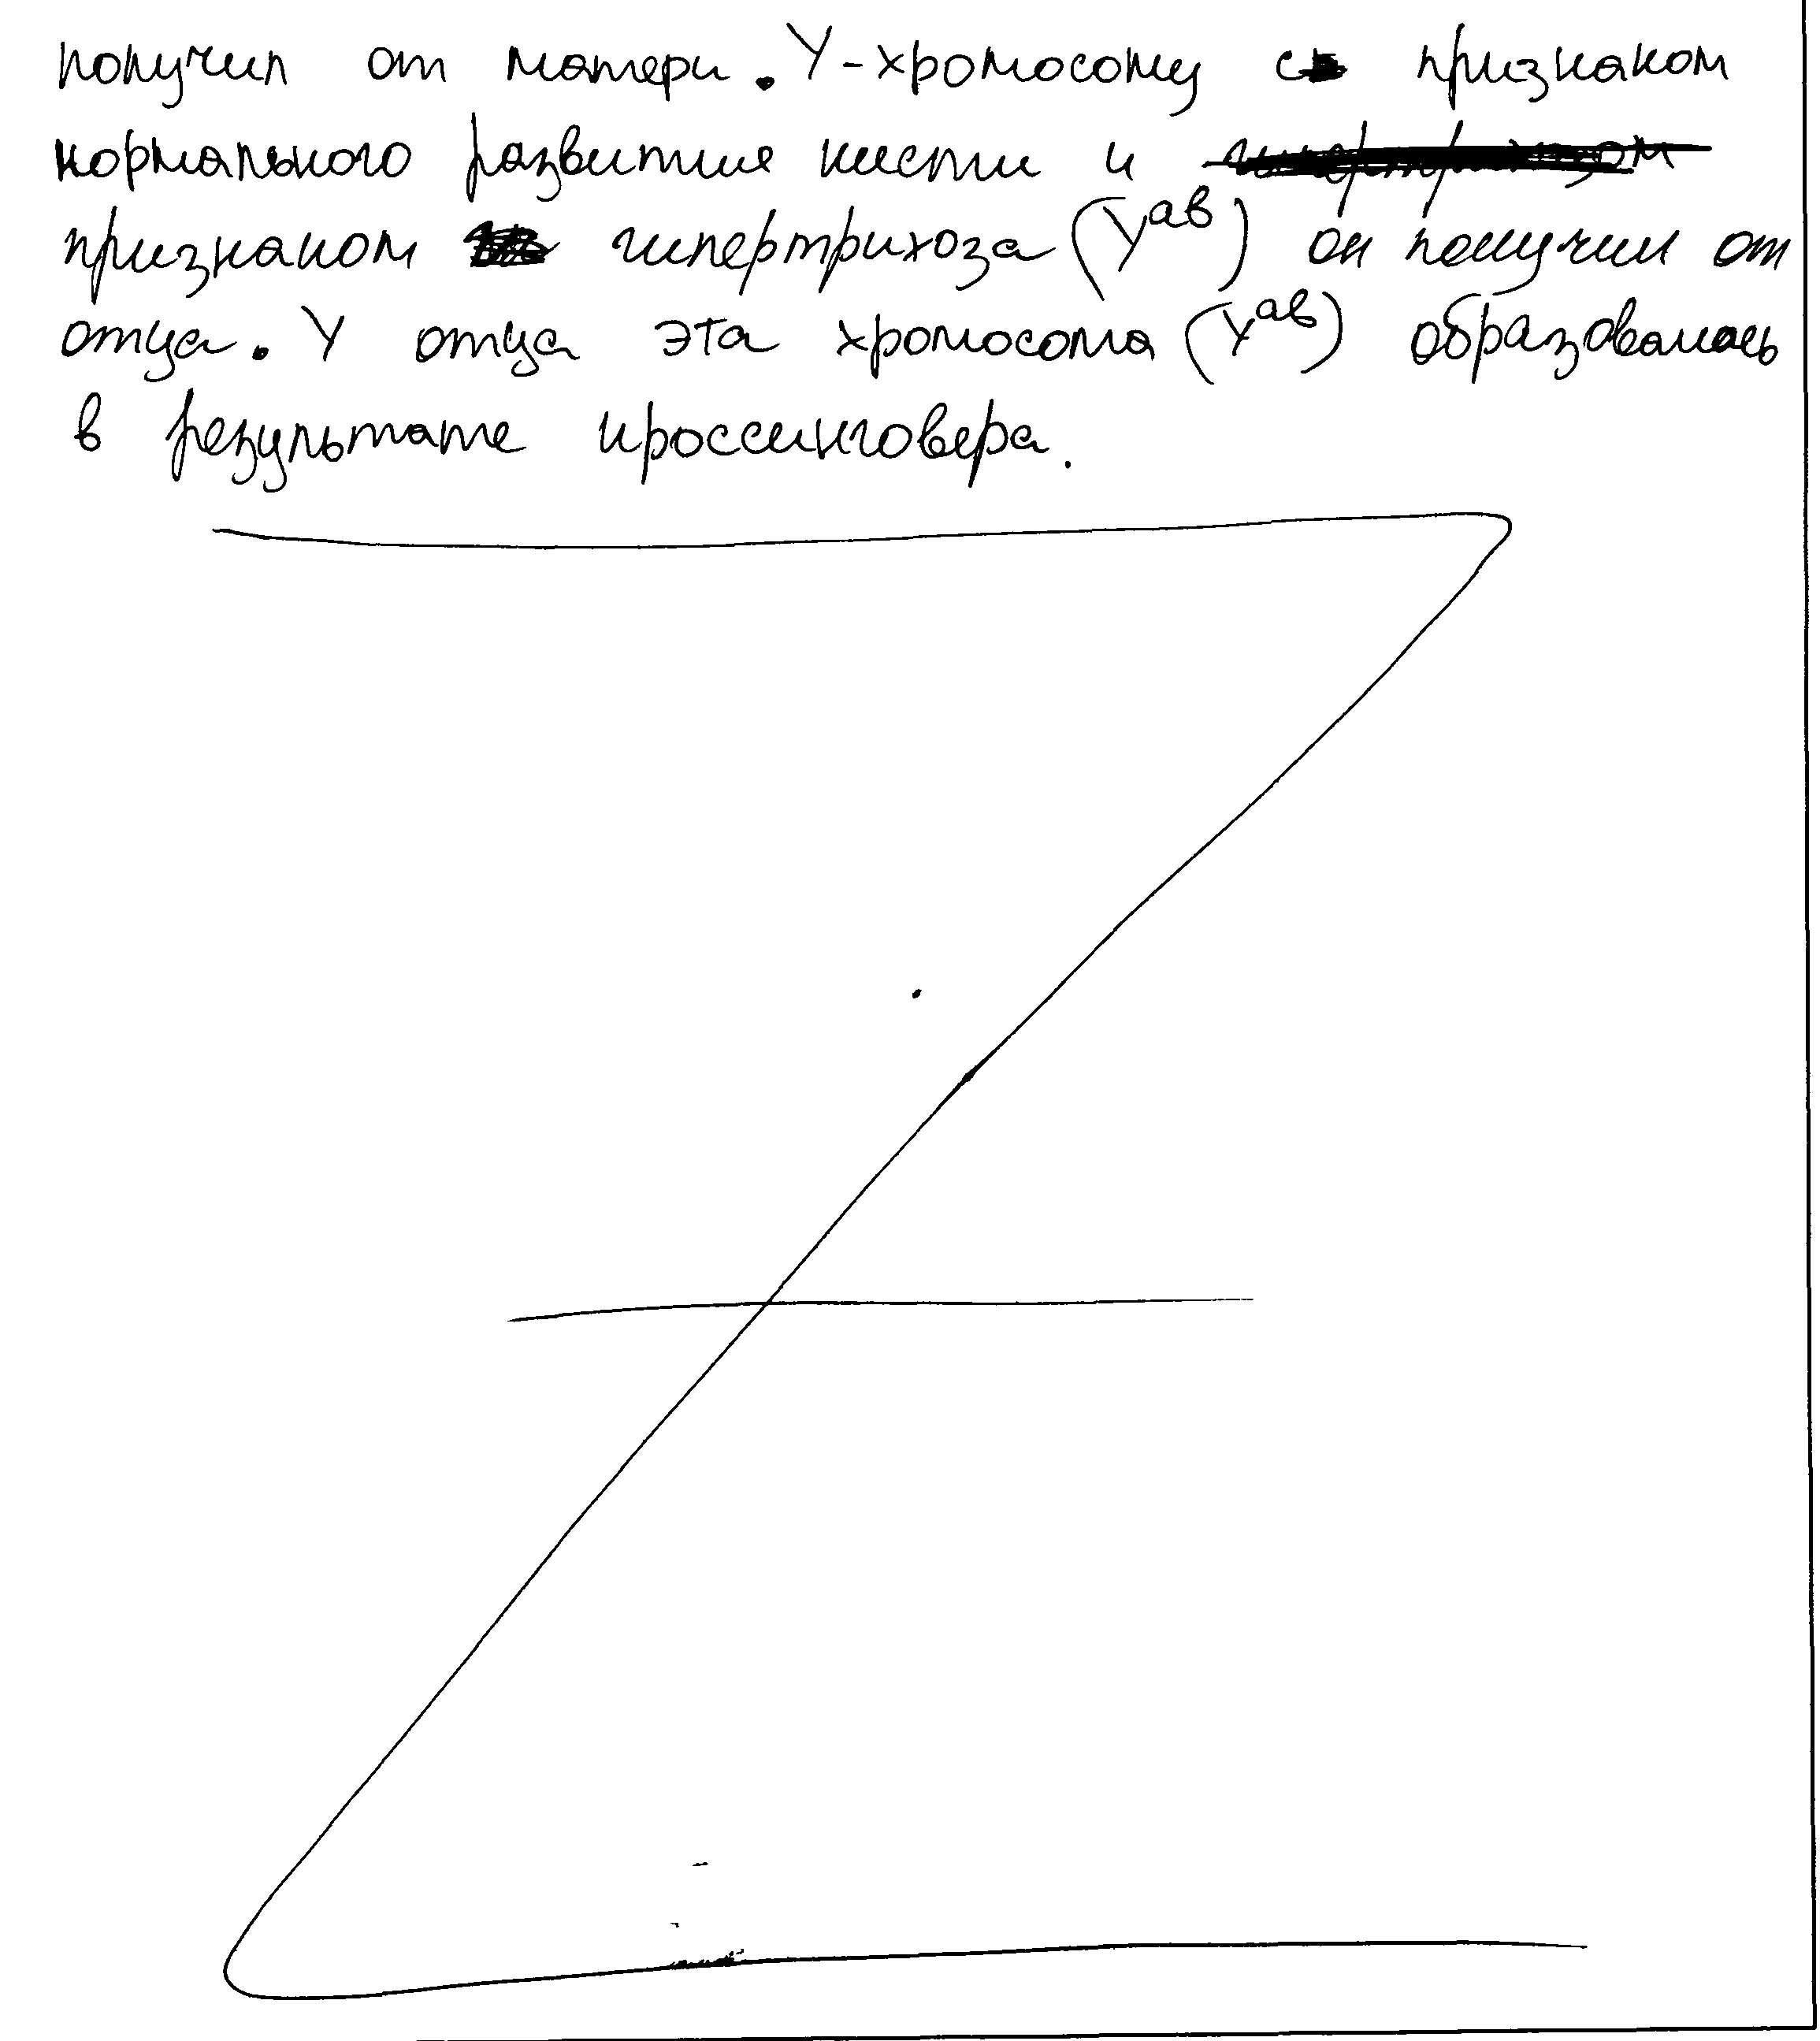 получил от матери. Y-хромосому с признаком
нормального развития кисти и
признаком гипертрихоза (Y^ав) он получил от
отца. У отца эта хромосома (Y^ав) образовалась
в результате кроссинговера.